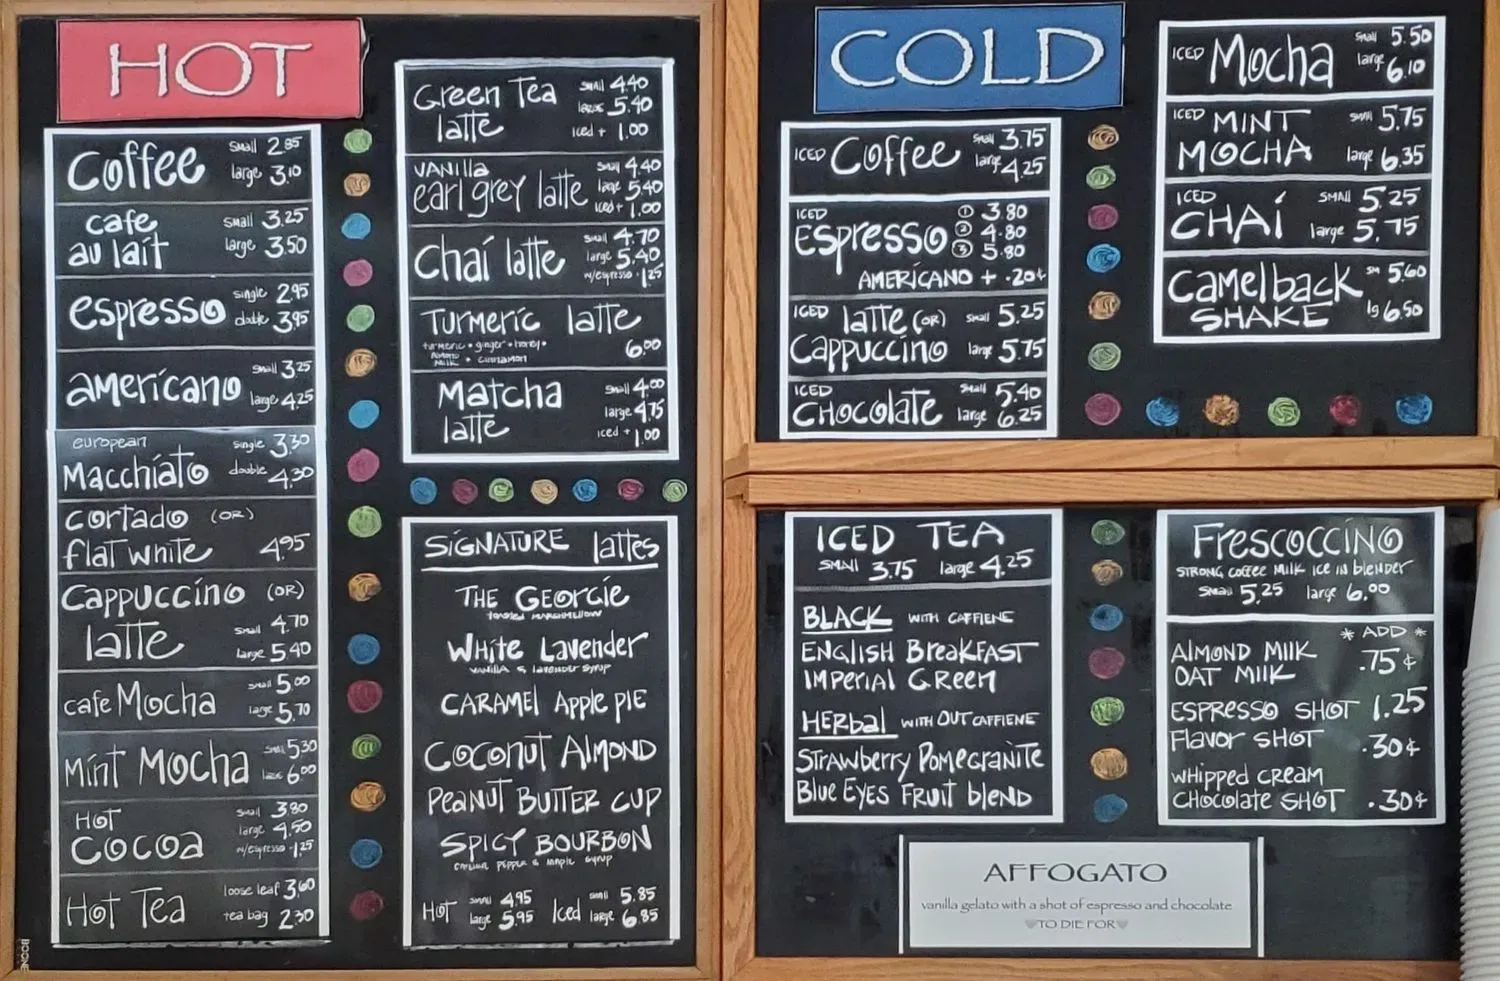 HOT
Coffee small 2.85
large 3.10
cafe au lait small 3.25
large 3.50
espresso single 2.95
double 3.95
americano small 3.25
large 4.25
european
Macchiato single 3.30
double 4.30
cortado (OR)
flat white 4.95
Cappuccino (OR)
latte small 4.70
large 5.40
cafe Mocha small 5.00
large 5.70
Mint Mocha small 5.30
large 6.00
HOT
COCOA small 3.80
large 4.50
w/espresso 1.25
Hot Tea loose leaf 3.60
tea bag 2.30
Green Tea small 4.40
latte large 5.40
iced + 1.00
VANILLA small 4.40
earl grey latte large 5.40
iced + 1.00
Chai latte small 4.70
large 5.40
w/espresso 1.25
Turmeric latte
turmeric • ginger • honey • 6.00
almond milk • cinnamon
Matcha small 4.00
latte large 4.75
iced + 1.00
SIGNATURE lattes
THE GEORGIE
toasted marshmellow
White Lavender
vanilla & lavender syrup
CARAMEL Apple PIE
COCONUT ALMOND
PEANUT BUTTER CUP
SPICY BOURBON
pepper & maple syrup
HOT small 4.95
large 5.95
Iced small 5.85
large 6.85
COLD
ICED Coffee small 3.75
large 4.25
ICED
Espresso 1 3.80
2 4.80
3 5.80
AMERICANO + .20¢
ICED latte (OR) small 5.25
Cappuccino large 5.75
ICED
CHOCOLATE small 5.40
large 6.25
ICED Mocha small 5.50
large 6.10
ICED MINT small 5.75
MOCHA large 6.35
ICED
CHAI SMALL 5.25
large 5.75
CAMELBACK sm 5.60
SHAKE lg 6.50
ICED TEA
SMALL 3.75 large 4.25
BLACK WITH CAFFIENE
ENGLISH BREAKFAST
IMPERIAL GREEN
HERBAL WITH OUT CAFFIENE
STRAWBERRY POMEGRANITE
Blue Eyes FRUIT blEND
Frescoccino
STRONG COFFEE MILK ICE IN BLENDER
Small 5.25 large 6.00
* ADD *
ALMOND MILK
OAT MILK .75¢
ESPRESSO SHOT 1.25
Flavor SHOT .30¢
WHIPPED CREAM
CHOCOLATE SHOT .30¢
AFFOGATO
vanilla gelato with a shot of espresso and chocolate
♥TO DIE FOR♥
BOONE